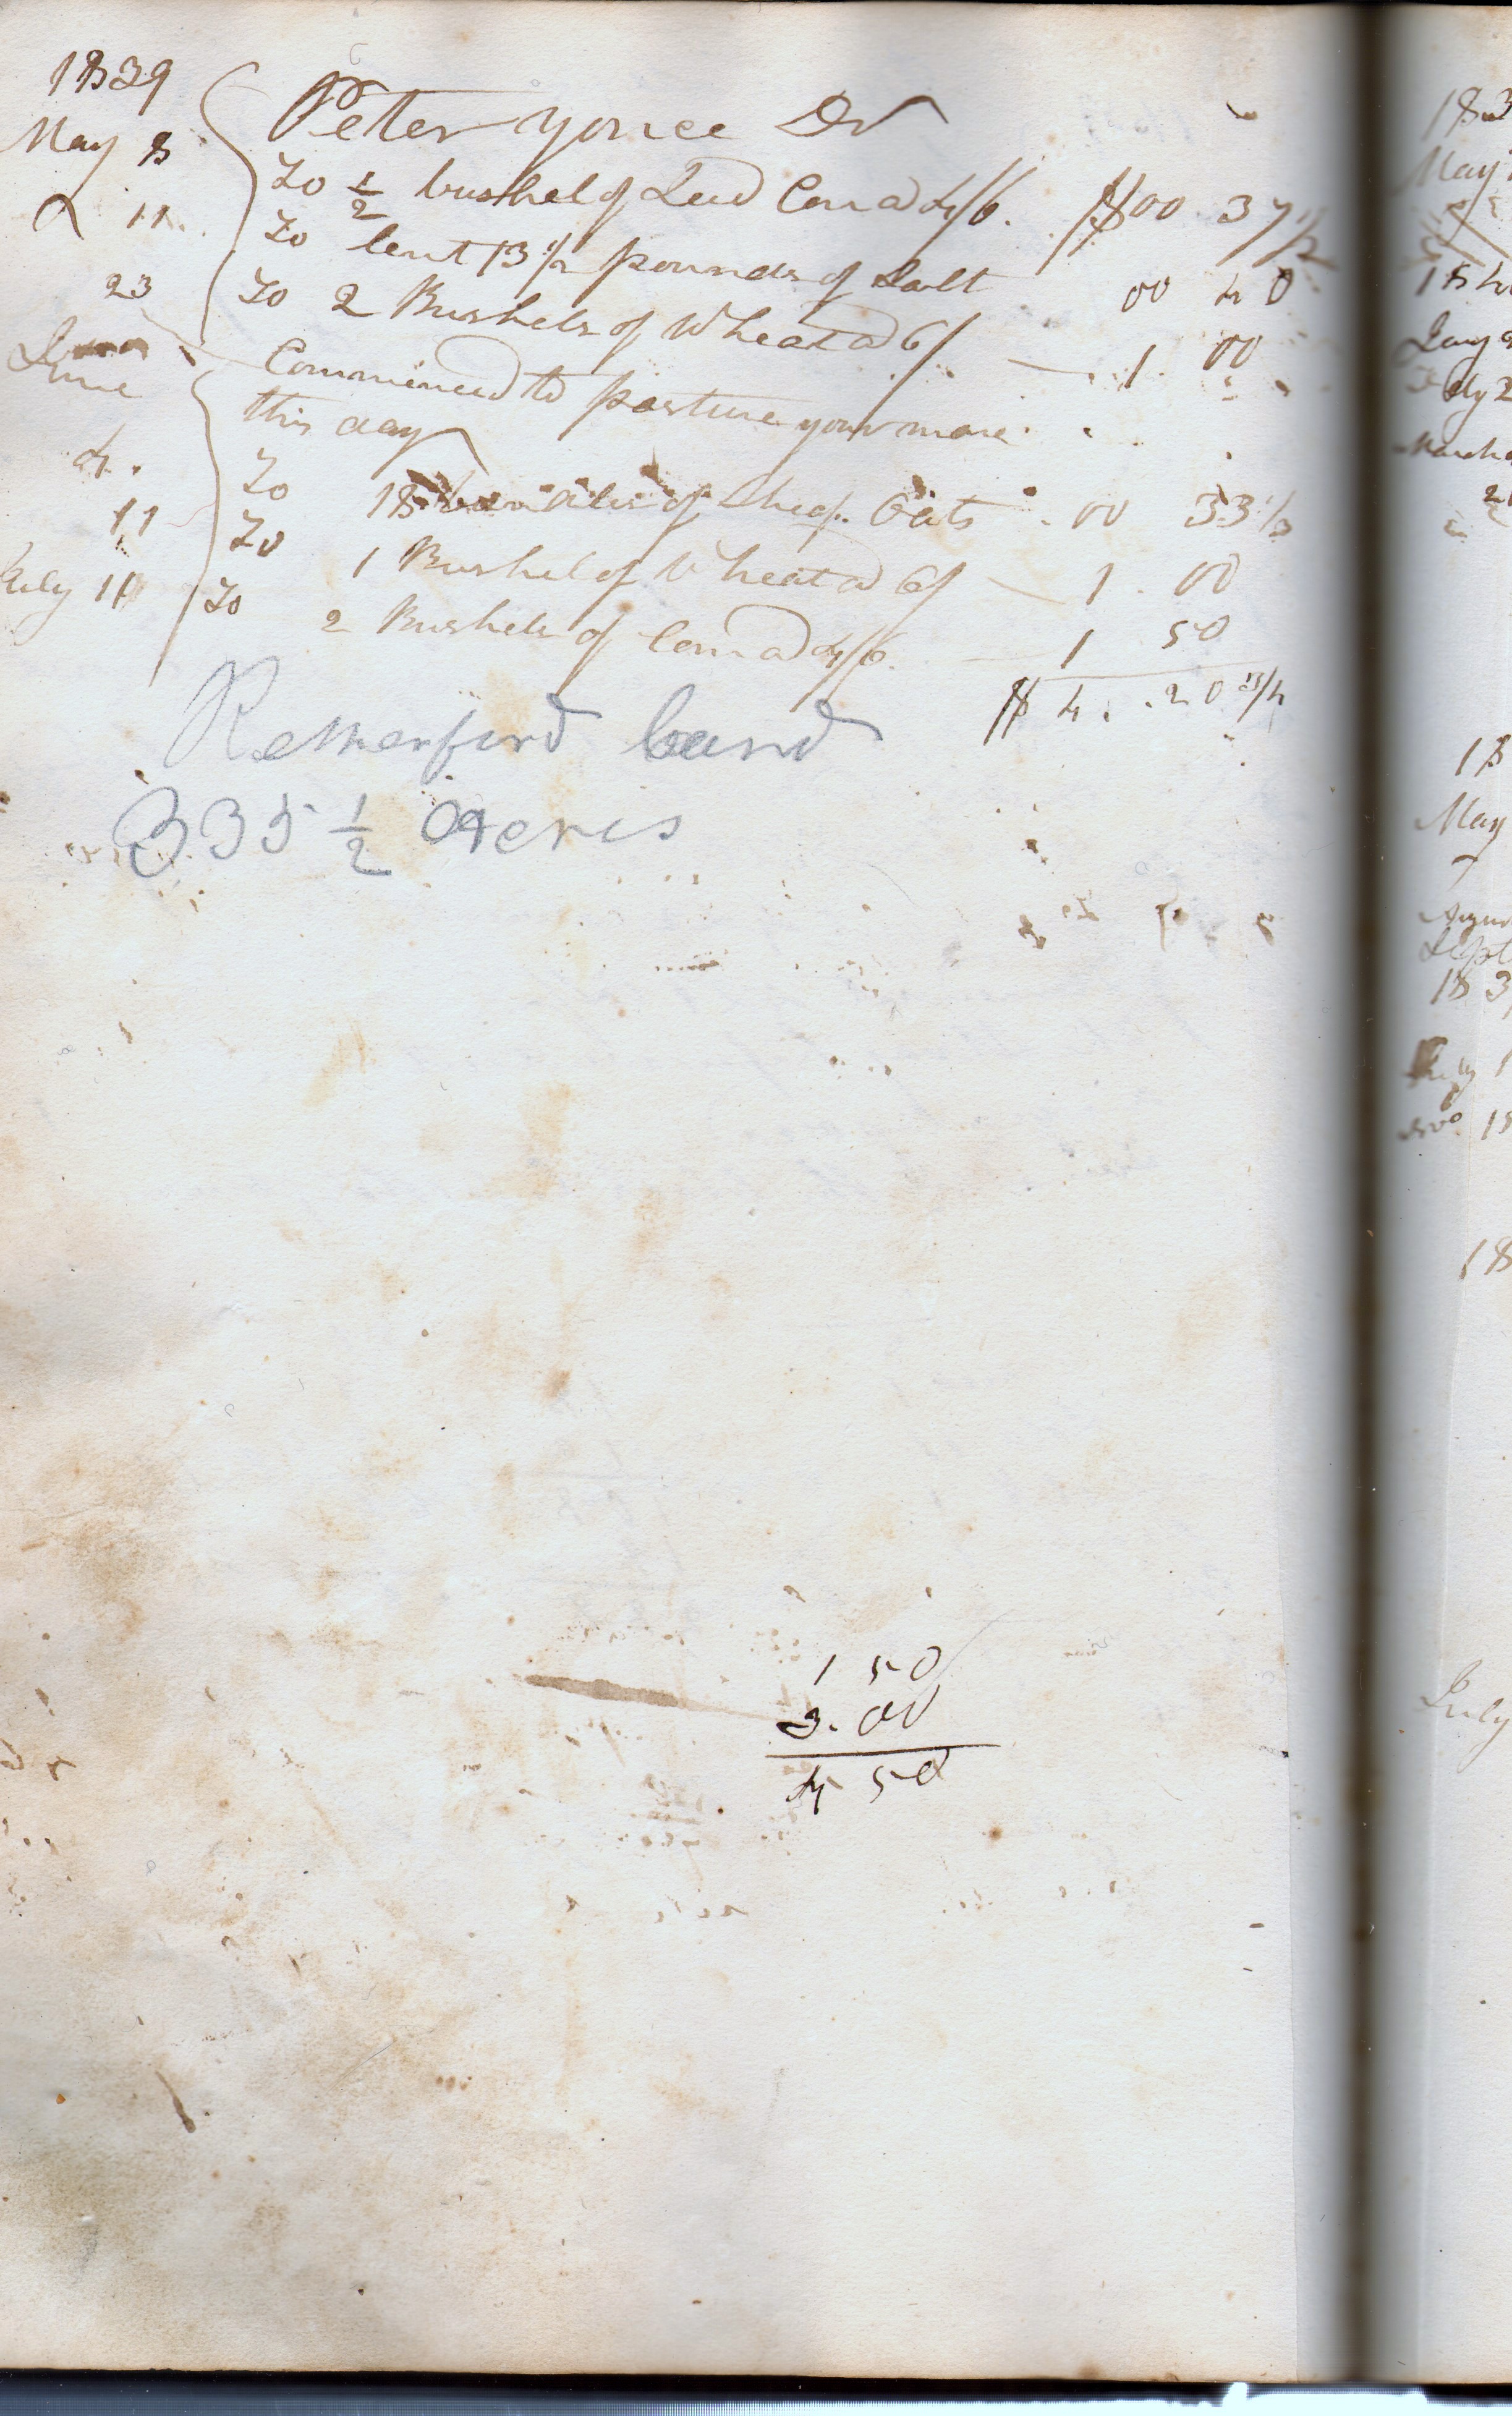 1839
Peter Yonce Dr
May 8 To 1/2 bushel of Seed Corn a 4/6. $00 37 1/2
11 To lent 13 1/2 pounds of Salt 00 40
23 To 2 Bushels of Wheat a 6/ 1.00
June
Commenced to pasture your mare
this day
4. To 18 bundles of Sheaf Oats 00 33 1/3
11 To 1 Bushel of Wheat a 6/ 1.00
July 11 To 2 Bushels of Corn a 4/6. 1 50
$ 4.20
Retherford land
335 1/2 Acres
1 50
3.00
4 50
183
May
July 2
March
18
May
7
Sept
183
July 1
18
July